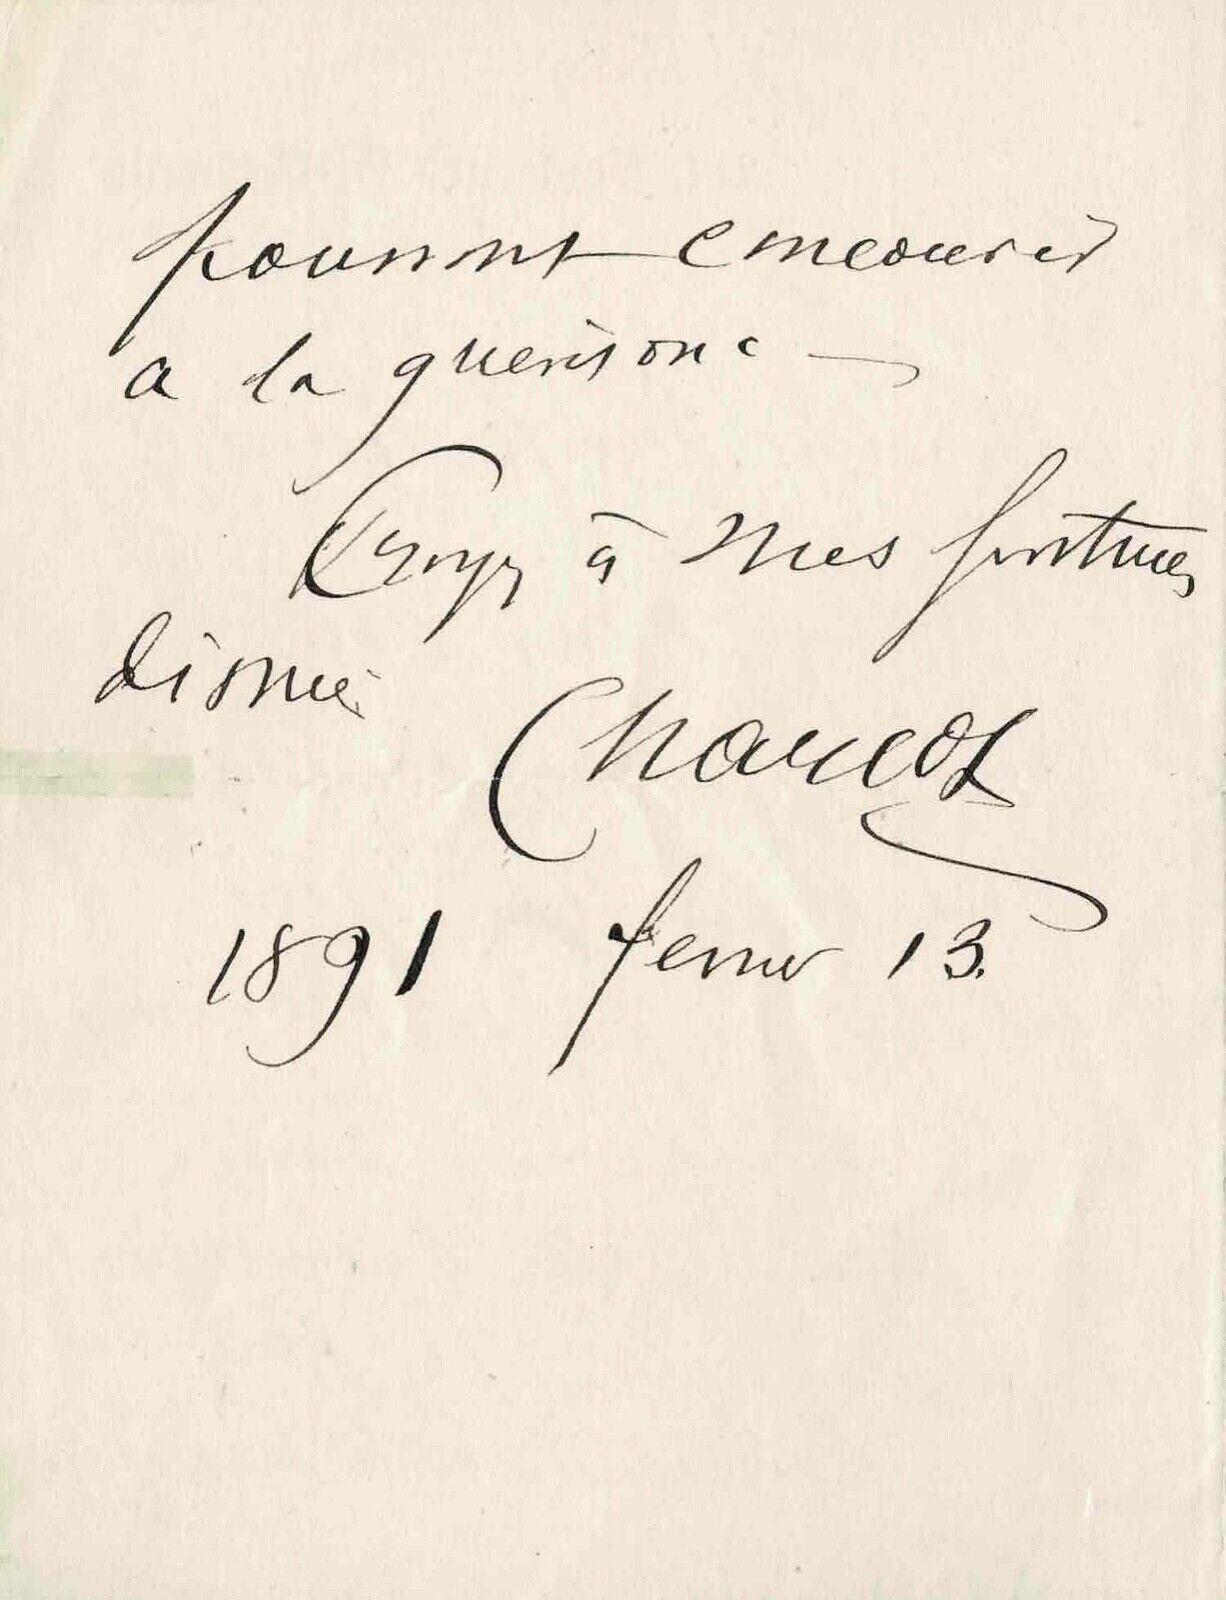 pouvant concourir
a la guerison.
Croyez à mes sentimens
dévoués
Charcot
1891 fevrier 13.